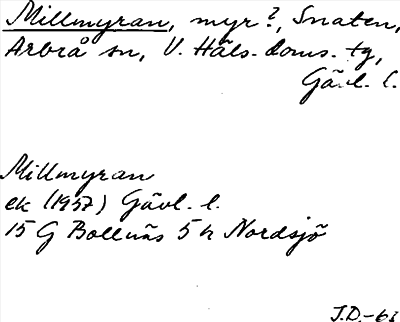 Millmyran, myr?, Snaten,
Arbrå sn, V. Häls. doms. tg,
Gävl. l.
Millmyran
ek (1957) Gävl. l.
15 G Bollnäs 5 h Nordsjö
J.D.-63